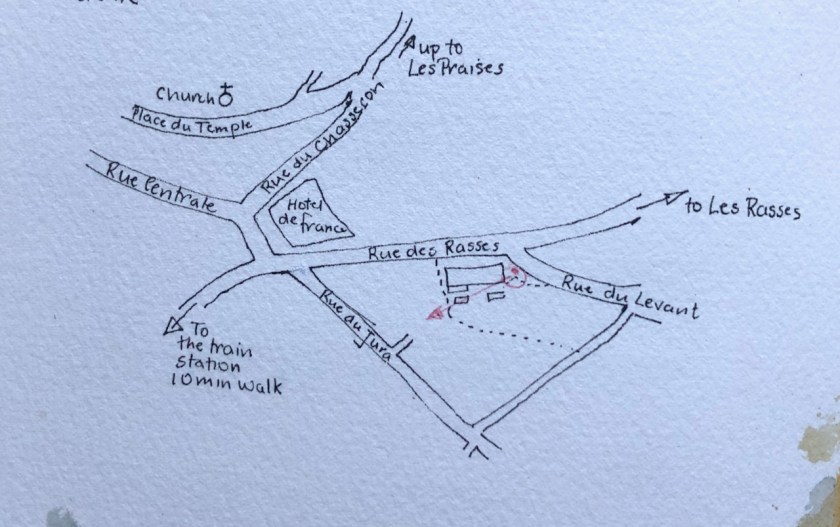 up to
Les Praises
Church
Place du Temple
Rue du Chasseron
Rue Centrale
Hotel
de france
to Les Rasses
Rue des Rasses
Rue du Levant
Rue du Jura
To
the train
station
10 min walk